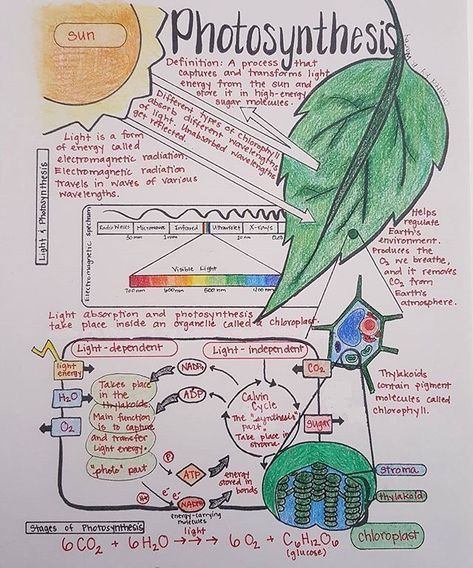 sun
Photosynthesis
Definition: A process that
captures and transforms light
energy from the sun and
store it in high-energy
sugar molecules.
Different types of chlorophyll
absorb different wavelengths
of light. Unabsorbed wavelengths
get reflected.
Light is a form
of energy called
electromagnetic radiation.
Electromagnetic radiation
travels in waves of various
wavelengths.
Light & Photosynthesis
Electromagnetic spectrum
Radio Waves
Microwave
Infrared
Ultraviolet
X-rays
Visible Light
Light absorption and photosynthesis
take place inside an organelle called a chloroplast.
Helps
regulate
Earth's
environment.
Produces the
O₂ we breathe,
and it removes
CO₂ from
Earth's
atmosphere.
Thylakoids
contain pigment
molecules called
chlorophyll.
Light-dependent
Light-independent
light
energy
H₂O
O₂
Takes place
in the
thylakoids.
Main function
is to capture
and transfer
light energy.
"photo" part
ADP
ATP
P
e⁻ e⁻
energy
stored in
bonds
energy-carrying
molecules
Calvin
Cycle
The "synthesis"
part.
Take place in
stroma.
CO₂
sugar
stroma
thylakoid
chloroplast
Stages of Photosynthesis
light
6CO₂ + 6H₂O →→→ 6O₂ + C₆H₁₂O₆
(glucose)